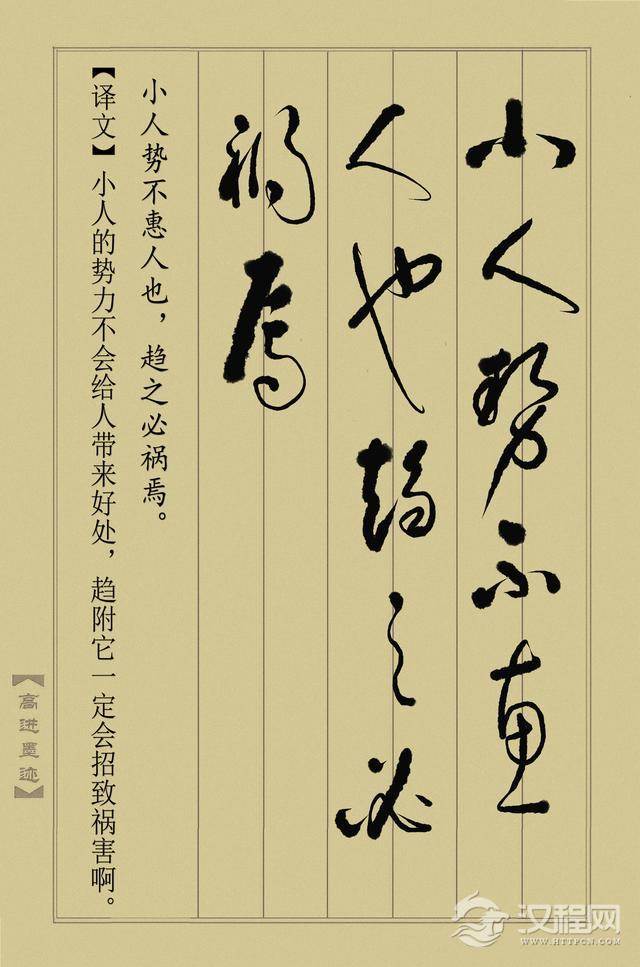 小人势不惠
人也趋之必
祸焉
小人势不惠人也，趋之必祸焉。
【译文】小人的势力不会给人带来好处，趋附它一定会招致祸害啊。
【高进墨迹】
汉程网
WWW.HTTPCN.COM